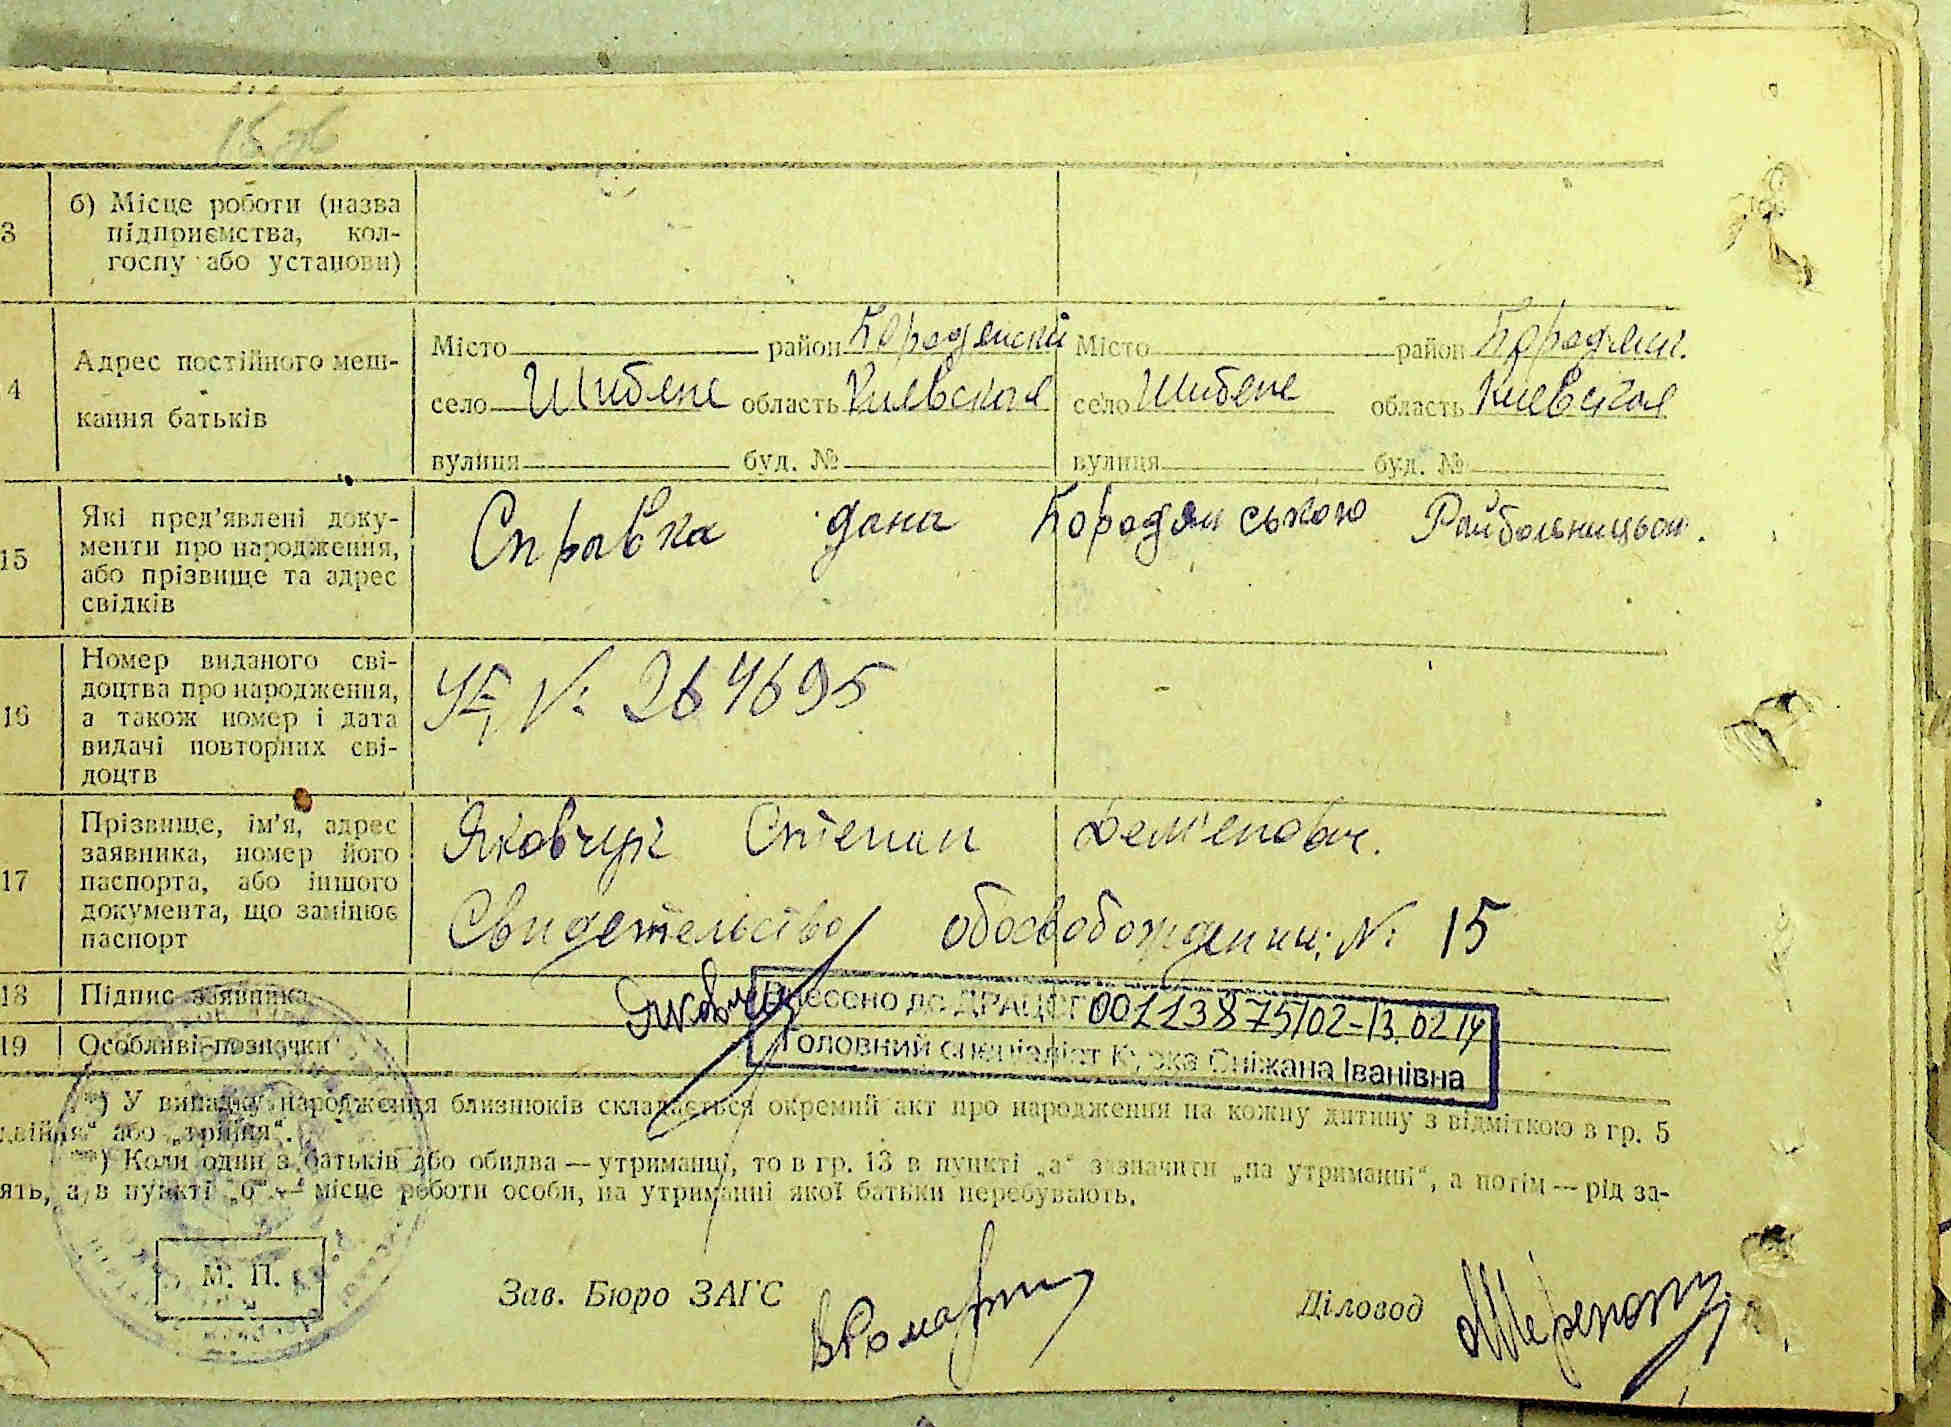 3
б) Місце роботи (назва
підприємства, кол-
госпу або установи)
4
Адрес постійного меш-
кання батьків
Місто район Бородянский Місто район Бородянск.
село Шибене область Киевская село Шибене область Киевская
вулиця буд. № вулиця буд. №
15
Які пред'явлені доку-
менти про народження,
або прізвище та адрес
свідків
Справка дана Бородянською Райбольницьою.
16
Номер виданого сві-
доцтва про народження,
а також номер і дата
видачі повторних сві-
доцтв
№ 264695
17
Прізвище, ім'я, адрес
заявника, номер його
паспорта, або іншого
документа, що замінює
паспорт
Яковчук Степан Дем'янович.
Свидетельство об освобождении; № 15
18
Підпис заявника
Яковчук
Внесено до ДРАЦСГ 00113875102-13.02.14
19
Особливі позначки
Головний спеціаліст Сніжана Іванівна
*) У випадку народження близнюків складається окремий акт про народження на кожну дитину з відміткою в гр. 5
„двійня“ або „трійня“.
**) Коли один з батьків або обидва — утриманці, то в гр. 13 в пункті „а“ зазначити „на утриманні“, а потім — рід за-
нять, а в пункті „б“ — місце роботи особи, на утриманні якої батьки перебувають.
М. П.
Зав. Бюро ЗАГС
Діловод